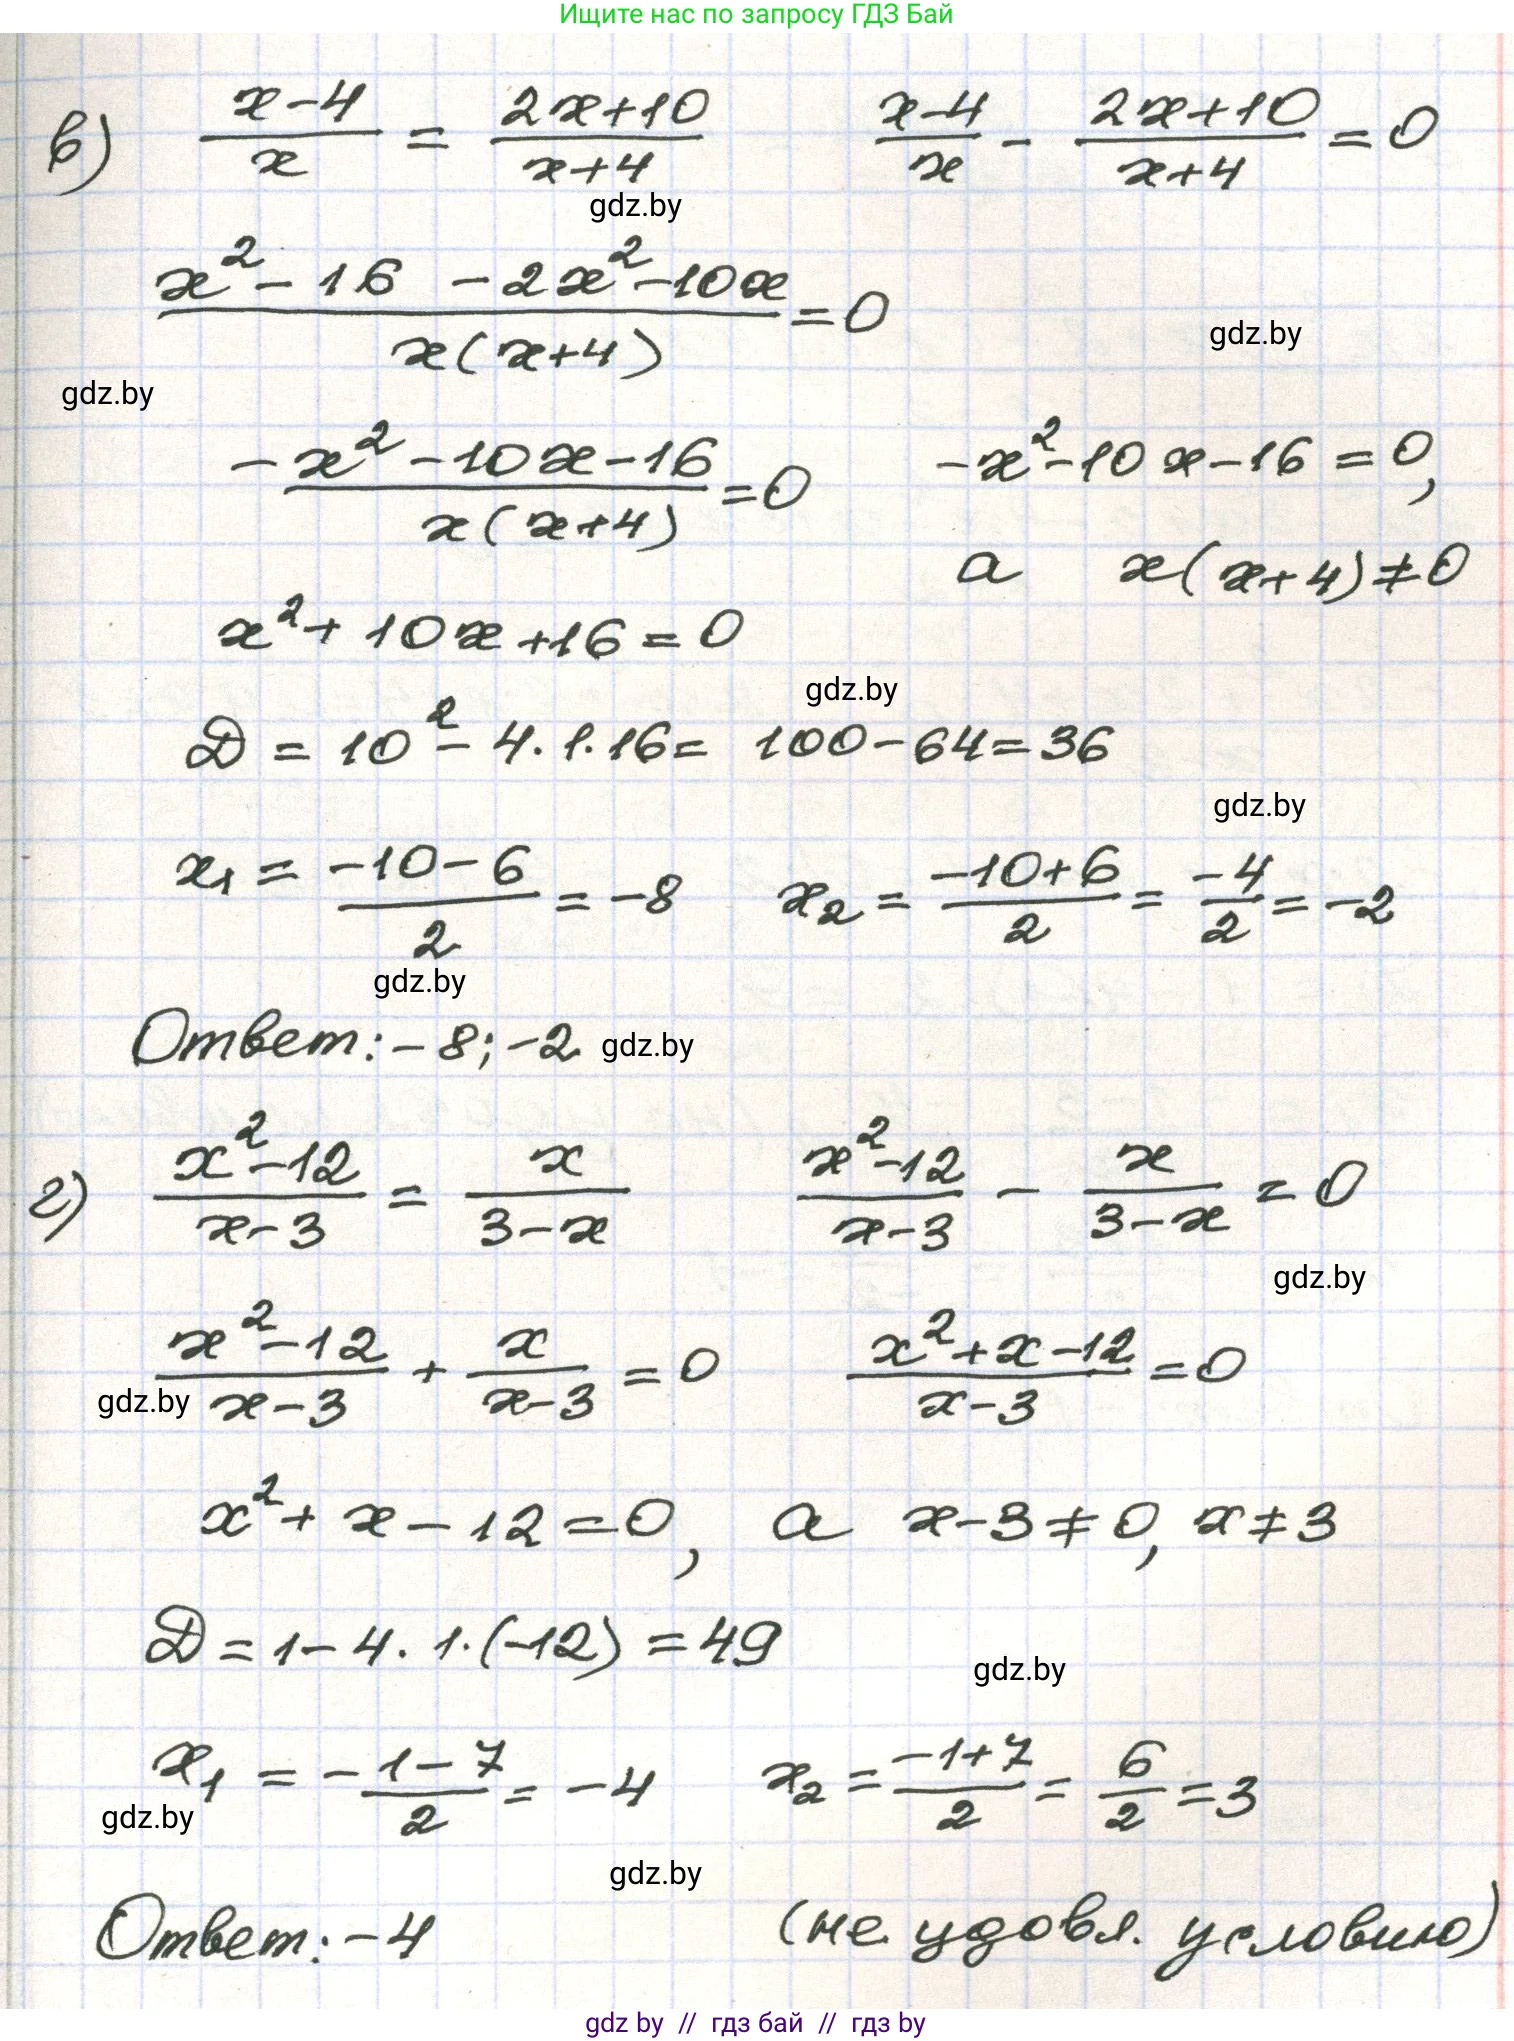 Ищите нас по запросу ГДЗ Бай
в) (x-4)/x = (2x+10)/(x+4)    (x-4)/x - (2x+10)/(x+4) = 0
gdz.by
(x²-16 -2x²-10x)/(x(x+4)) = 0
gdz.by
gdz.by
(-x²-10x-16)/(x(x+4)) = 0    -x²-10x-16=0,
а x(x+4)≠0
x²+10x+16=0
gdz.by
D = 10²-4·1·16 = 100-64=36
gdz.by
x₁ = (-10-6)/2 = -8    x₂ = (-10+6)/2 = -4/2 = -2
gdz.by
Ответ: -8; -2 gdz.by
г) (x²-12)/(x-3) = x/(3-x)    (x²-12)/(x-3) - x/(3-x) = 0
gdz.by
(x²-12)/(x-3) + x/(x-3) = 0    (x²+x-12)/(x-3) = 0
gdz.by
x²+x-12=0, а x-3≠0, x≠3
D=1-4·1·(-12)=49
gdz.by
x₁ = (-1-7)/2 = -4    x₂ = (-1+7)/2 = 6/2 = 3
gdz.by
gdz.by
Ответ: -4    (не удовл. условию)
gdz by // гдз бай // gdz by